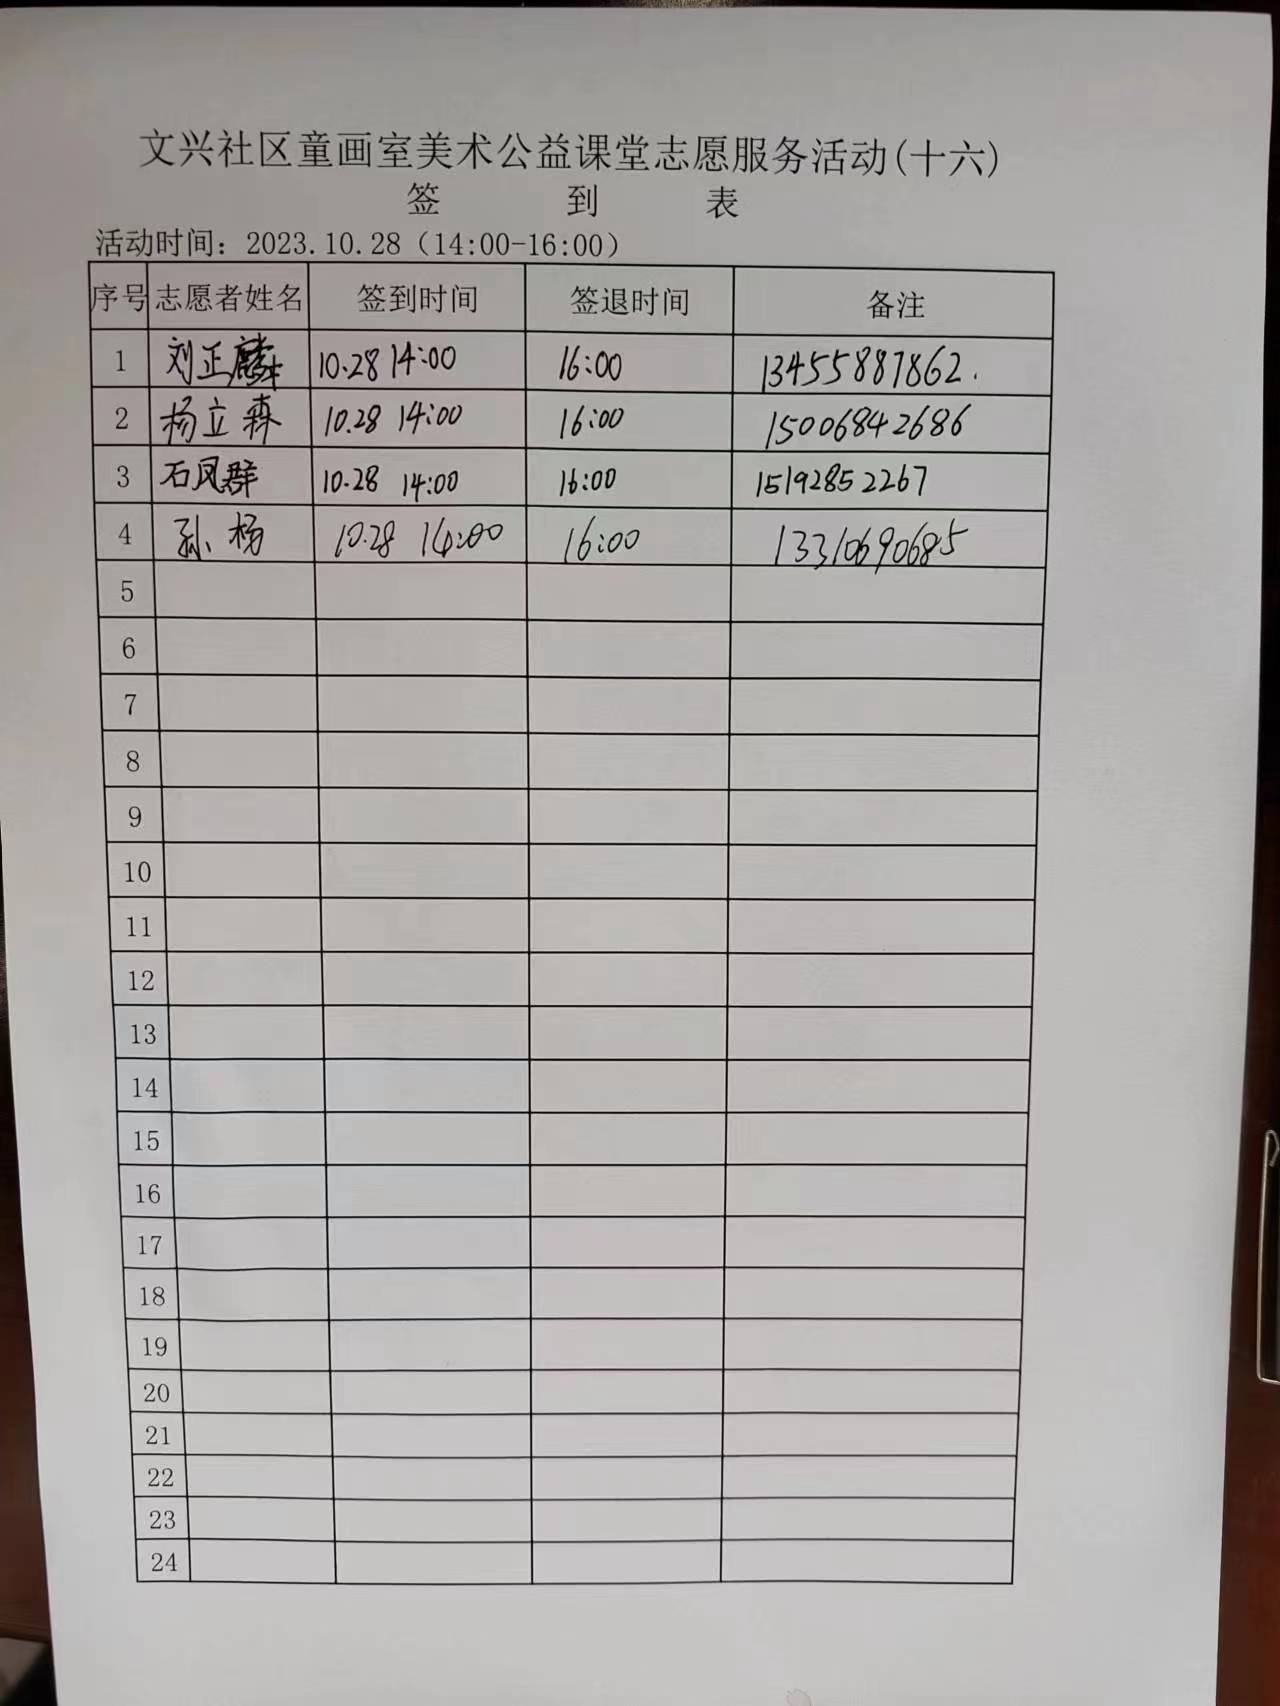 文兴社区童画室美术公益课堂志愿服务活动(十六)
签 到 表
活动时间：2023.10.28（14:00-16:00）
序号 志愿者姓名 签到时间 签退时间 备注
1 刘正麟 10.28 14:00 16:00 13455887862.
2 杨立森 10.28 14:00 16:00 15006842686
3 石凤群 10.28 14:00 16:00 15192852267
4 孙杨 10.28 14:00 16:00 13310690685
5
6
7
8
9
10
11
12
13
14
15
16
17
18
19
20
21
22
23
24